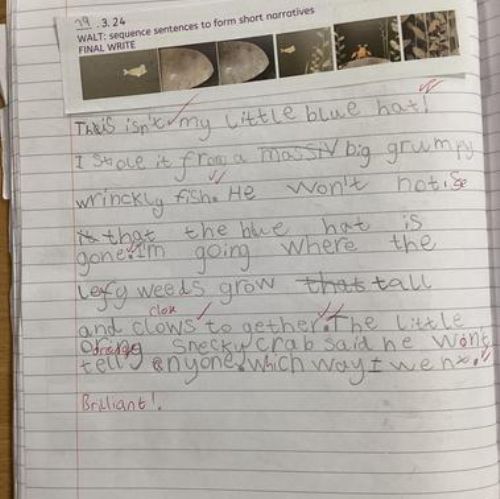 29.3.24
WALT: sequence sentences to form short narratives
FINAL WRITE
This isn't my little blue hat!
I stole it from a massiv big grumpy
wrinckly fish. He won't notise
it that the blue hat is
gone. I'm going where the
lefy weeds grow that tall
clox
and clows to gether. The little
oring snecky crab said he won't
orange
tell enyone which way I went.
Brilliant!